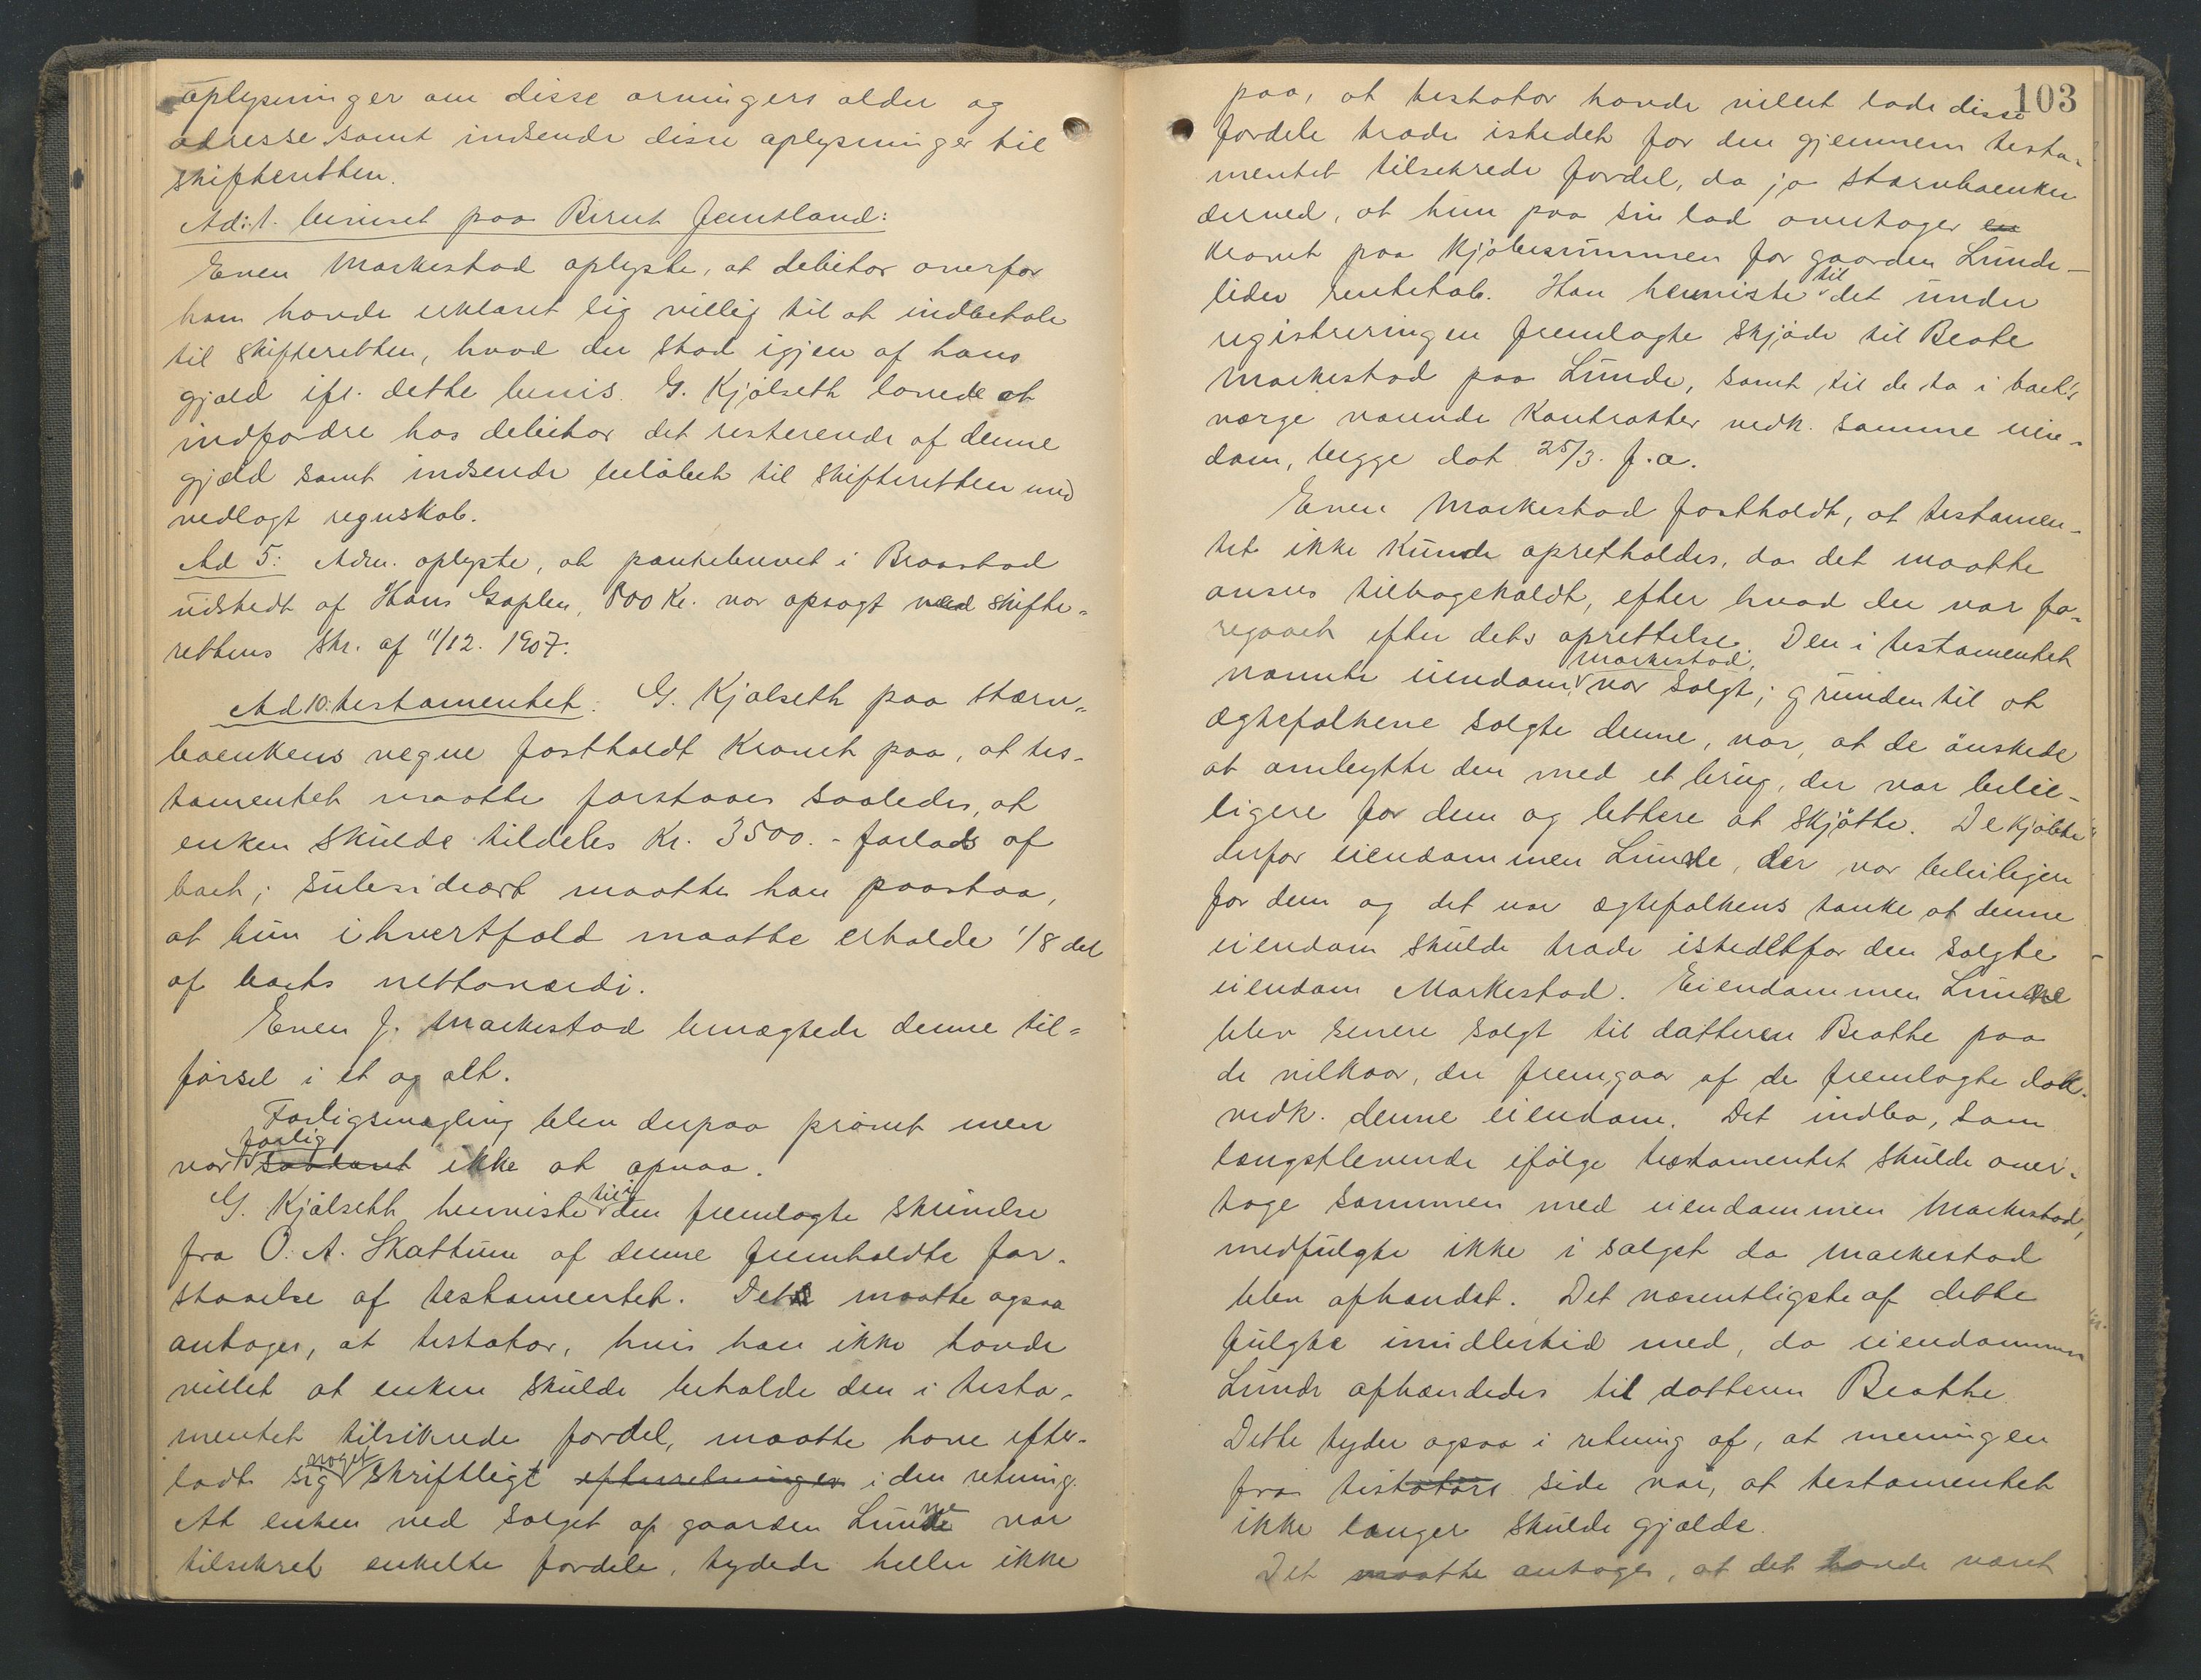 oplysninger om disse arvingers alder og
adresse samt indsende disse oplysninger til
skifteretten.
Ad: 1. beviset paa Bernt Jemtland:
Even Markestad oplyste, at debitor overfor
ham havde erklæret sig villig til at indbetale
til skifteretten, hvad der stod igjen af hans
gjæld ifl. dette bevis. G. Kjølseth lovede at
indfordre hos debitor det resterende af denne
gjæld samt indsende beløbet til skifteretten med
vedlagt regnskab.
Ad 5: Adm. oplyste, at pantebrevet i Braastad
udstedt af Hans Gaplen, 800 Kr. var opsagt ved skifte-
rettens skr. af 11/12. 1907.
Ad 10: testamentet: G. Kjølseth paa stærv-
boenkens vegne fastholdt kravet paa, at tes-
tamentet maatte forstaaes saaledes, at
enken skulde tildeles Kr. 3500.- forlods af
boet; subsidiært maatte han paastaa,
at hun ihvertfald maatte erholde 1/8 del
af boets nettoværdi.
Even J. Markestad benægtede denne til-
førsel i et og alt.
Forligsmægling blev derpaa prøvet men
var forlig saadant ikke at opnaa.
G. Kjølseth henviste til i den fremlagte skrivelse
fra O. A. Skattum af denne fremholdte for-
staaelse af testamentet. Det maatte ogsaa
antages, at testator, hvis han ikke havde
villet at enken skulde beholde den i testa-
mentet tilsikrede fordel, maatte have efter-
ladt sig noget skriftligt efterretninger i den retning.
At enken ved salget af gaarden Lunde var
tilsikret enkelte fordele, tydede heller ikke
103
paa, at testator havde villet lade disse
fordele træde istedet for den gjennem testa-
mentet tilsikrede fordel, da jo stærvboenken
derved, at hun paa sin lod overtager en
kravet paa kjøbesummen for gaarden Lunde
lider rentetab. Han henviste til det under
registreringen fremlagte skjøde til Beate
Markestad paa Lunde, samt til de to i boets
værge værende kontrakter vedk. samme eien-
dom, begge dat 25/3. f.a.
Even Markestad fastholdt, at testamen-
tet ikke kunde opretholdes, da det maatte
ansees tilbagekaldt, efter hvad der var fo-
regaaet efter dets oprettelse. Den i testamentet
nævnte eiendom, Markestad, var solgt; grunden til at
ægtefolkene solgte denne, var, at de ønskede
at ombytte den med et brug, der var belei-
ligere for dem og lettere at skjøtte. De kjøbte
derfor eiendommen Lunde, der var beleiligere
for dem og det var ægtefolkens tanke at denne
eiendom skulde træde istedetfor den solgte
eiendom Markestad. Eiendommen Lunde
blev senere solgt til datteren Beathe paa
de vilkaar, der fremgaar af de fremlagte dok.
vedk. denne eiendom. Det indbo, som
længstlevende ifølge testamentet skulde over-
tage sammen med eiendommen Markestad,
medfulgte ikke i salget da Markestad
blev afhændet. Det væsentligste af dette
fulgte imidlertid med, da eiendommen
Lunde afhændedes til datteren Beathe.
Dette tyder ogsaa i retning af, at meningen
fra testators side var, at testamentet
ikke længer skulde gjælde.
Det maatte antages, at det havde været